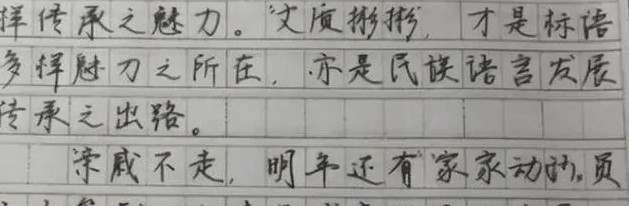 样传承之魅力。“文质彬彬，才是标语
多样魅力之所在，亦是民族语言发展
传承之出路。
亲戚不走，明年还有家家动的。员